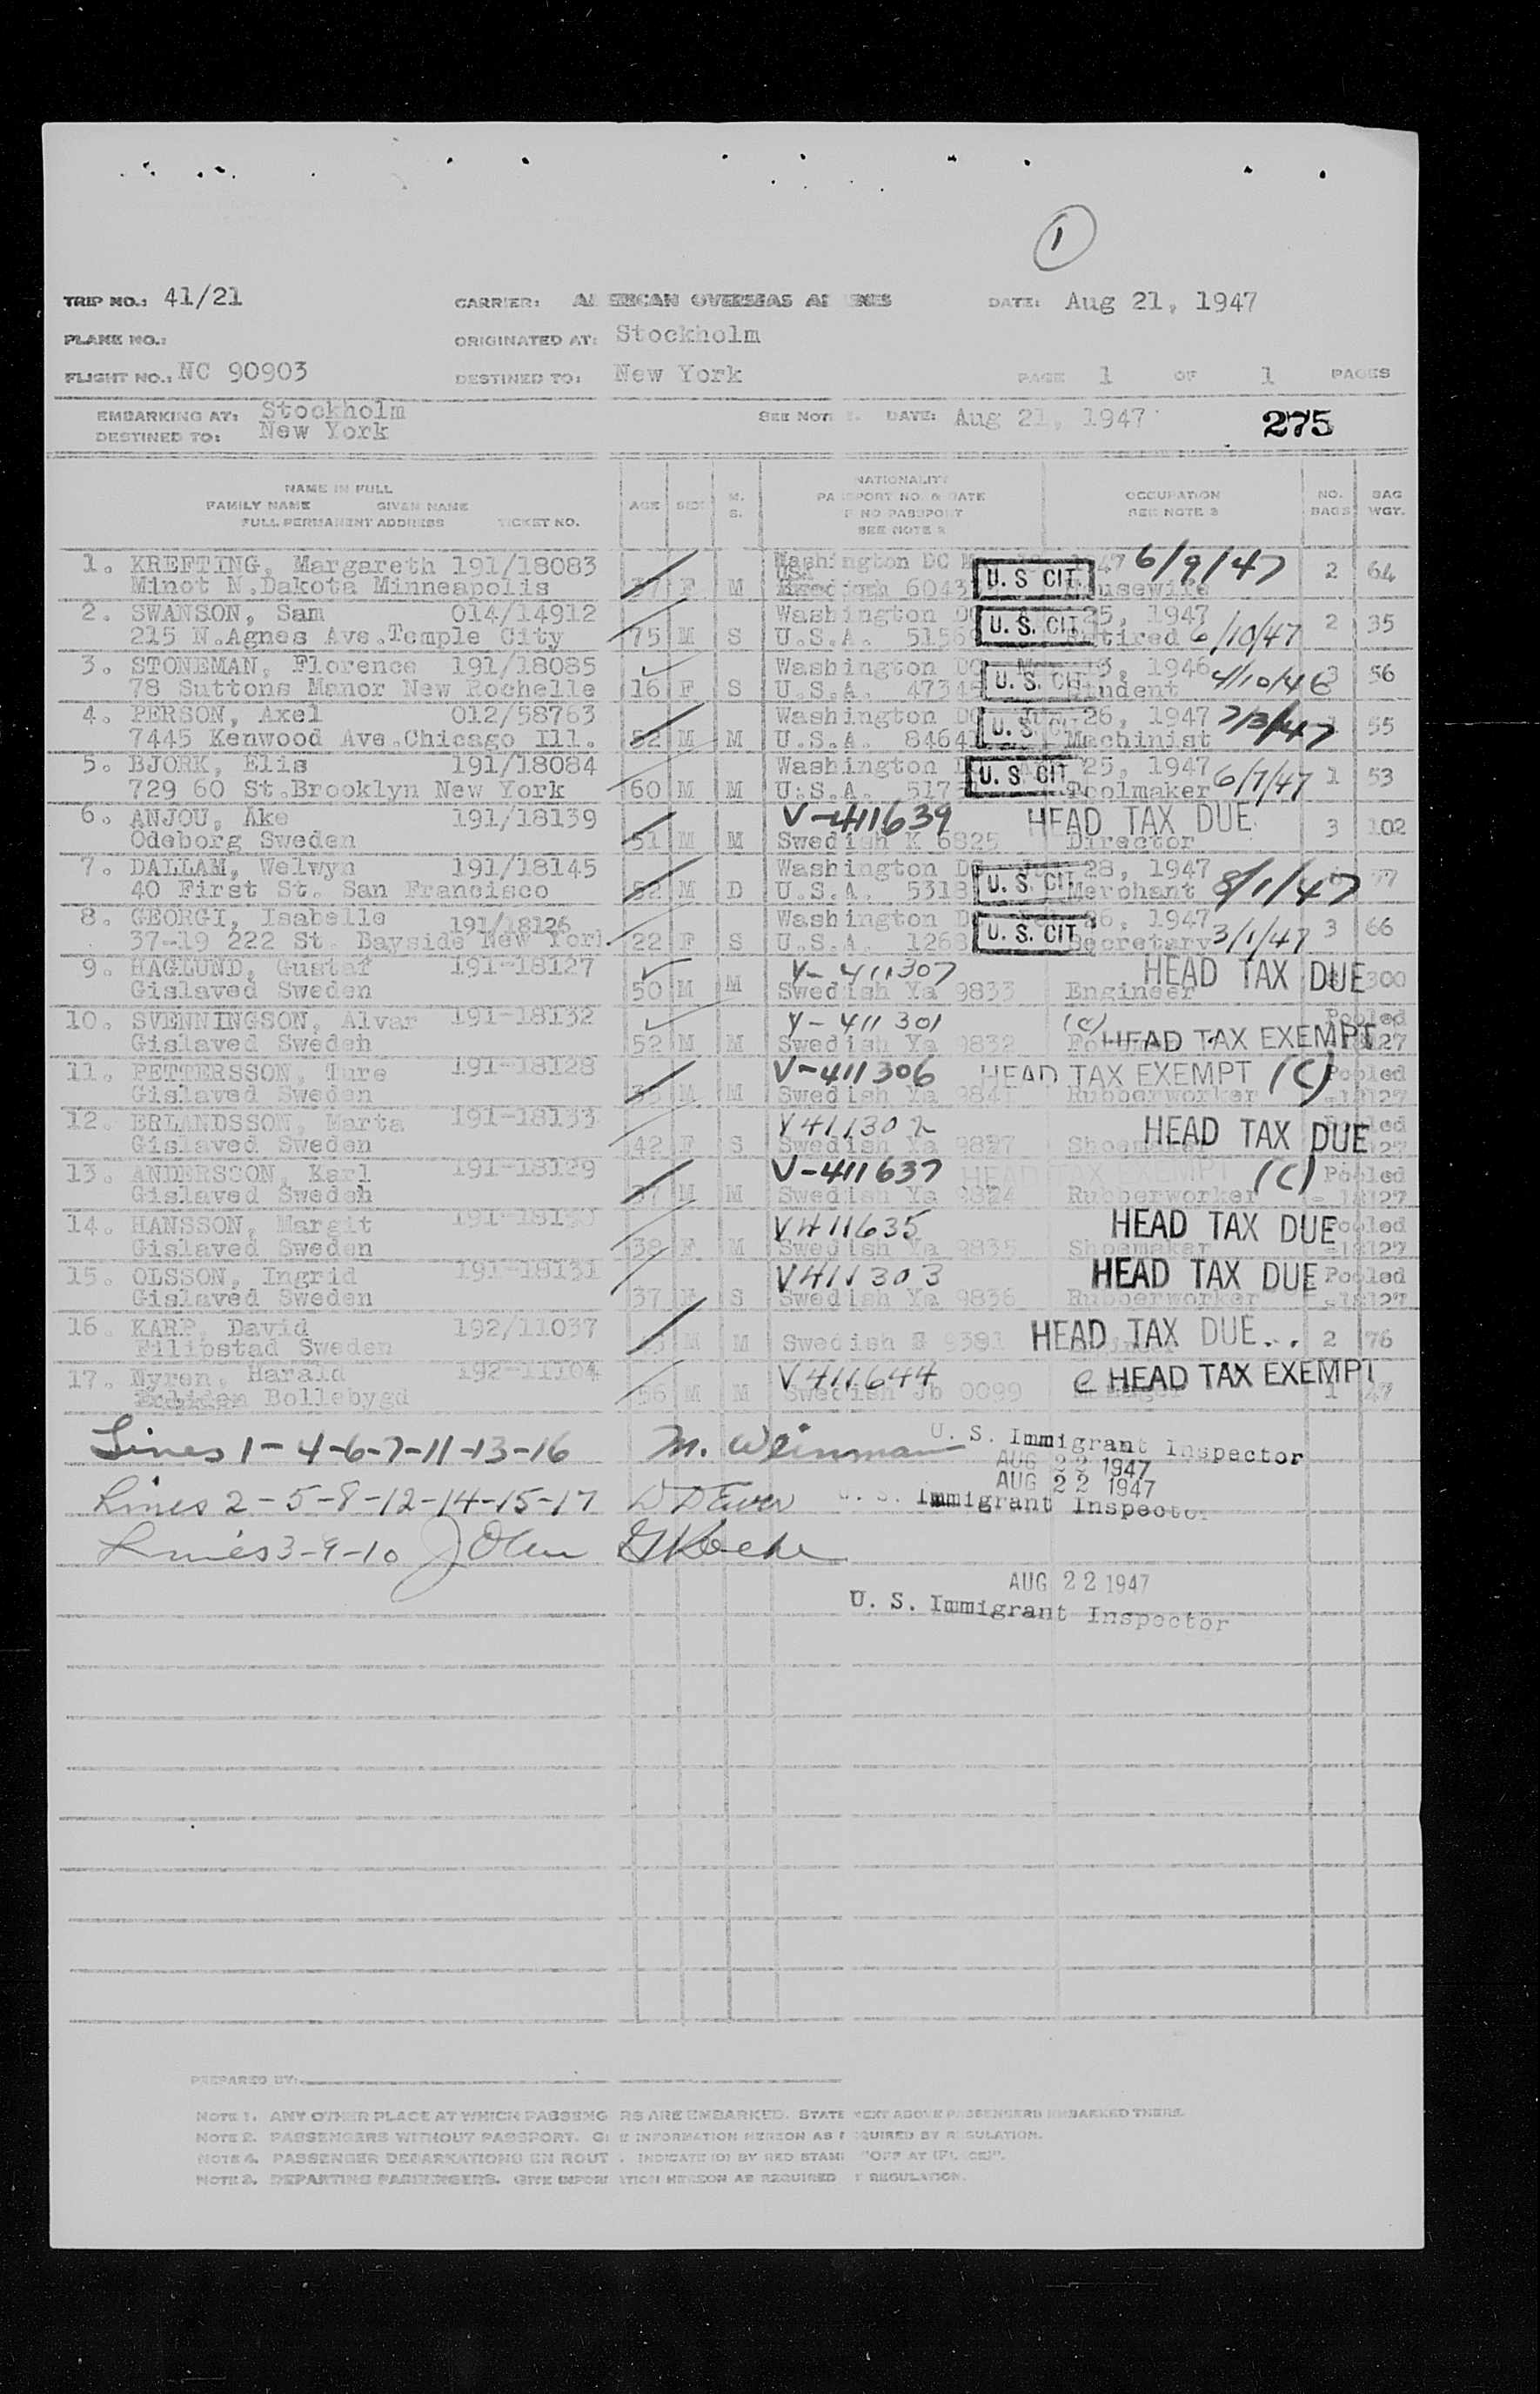 1
TRIP NO.: 41/21 CARRIER: AMERICAN OVERSEAS AIRLINES DATE: Aug 21, 1947
PLANE NO.: ORIGINATED AT: Stockholm
FLIGHT NO.: NC 90903 DESTINED TO: New York PAGE 1 OF 1 PAGES
EMBARKING AT: Stockholm SEE NOTE DATE: Aug 21, 1947 275
DESTINED TO: New York
NAME IN FULL
FAMILY NAME GIVEN NAME
FULL PERMANENT ADDRESS TICKET NO. AGE SEX M. S. NATIONALITY PASSPORT NO. & DATE IF NO PASSPORT SEE NOTE 2 OCCUPATION SEE NOTE 3 NO. BAGS BAG WGT.
1. KREFTING, Margareth 191/18083 Washington DC 1947 6/9/47
Minot N.Dakota Minneapolis 37 F M USA 6043 U. S CIT Housewife 2 64
2. SWANSON, Sam 014/14912 Washington DC 25, 1947
215 N.Agnes Ave.Temple City 75 M S U.S.A. 5156 U. S. CIT Retired 6/10/47 2 35
3. STONEMAN, Florence 191/18085 Washington DC 1946 4/10/46
78 Suttons Manor New Rochelle 16 F S U.S.A. 4734 U. S. CIT Student 3 56
4. PERSON, Axel 012/58763 Washington DC 26, 1947 7/3/47
7445 Kenwood Ave.Chicago Ill. 52 M M U.S.A. 8464 U. S. CIT Machinist 55
5. BJORK, Elis 191/18084 Washington 25, 1947 6/7/47
729 60 St.Brooklyn New York 60 M M U.S.A. 517 U. S. CIT Toolmaker 1 53
6. ANJOU, Ake 191/18139 V-411639 HEAD TAX DUE
Odeborg Sweden 51 M M Swedish K 6825 Director 3 102
7. DALLAM, Welwyn 191/18145 Washington DC 28, 1947
40 First St. San Francisco 52 M D U.S.A. 5318 U. S. CIT Merchant 8/1/47 77
8. GEORGI, Isabelle 191/18126 Washington 26, 1947
37-19 222 St. Bayside New York 22 F S U.S.A. 1268 U. S. CIT Secretary 3/1/47 3 66
9. HAGLUND, Gustaf 191-18127 V-411307 HEAD TAX DUE
Gislaved Sweden 50 M M Swedish Ya 9833 Engineer 300
10. SVENNINGSON, Alvar 191-18132 V-411301 (c) Pooled
Gislaved Sweden 52 M M Swedish Ya 9832 HEAD TAX EXEMPT 127
11. PETTERSSON, Ture 191-18128 V-411306 HEAD TAX EXEMPT (C) Pooled
Gislaved Sweden 35 M M Swedish Ya 9841 Rubberworker 127
12. ERLANDSSON, Marta 191-18133 V411302 HEAD TAX DUE Pooled
Gislaved Sweden 42 F S Swedish Ya 9827 Shoemaker 127
13. ANDERSSON, Karl 191-18129 V-411637 HEAD TAX EXEMPT (C) Pooled
Gislaved Sweden 37 M M Swedish Ya 9824 Rubberworker 127
14. HANSSON, Margit V411635 HEAD TAX DUE Pooled
Gislaved Sweden 38 F M Swedish Ya 9835 Shoemaker 127
15. OLSSON, Ingrid 191-18131 V411303 HEAD TAX DUE Pooled
Gislaved Sweden 37 F S Swedish Ya 9836 Rubberworker 127
16. KARP, David 192/11037 HEAD TAX DUE
Filipstad Sweden M M Swedish 9381 2 76
17. Nyren, Harald 192-11104 V411644 C HEAD TAX EXEMPT
Bollebygd 56 M M Swedish Jb 0099 Manager 1 47
Lines 1-4-6-7-11-13-16 M. Weinman U. S. Immigrant Inspector
AUG 22 1947
AUG 22 1947
Lines 2-5-8-12-14-15-17 U. S. Immigrant Inspector
Lines 3-9-10
AUG 22 1947
U. S. Immigrant Inspector
PREPARED BY:
NOTE 1. ANY OTHER PLACE AT WHICH PASSENGERS ARE EMBARKED. STATE NEXT ABOVE PASSENGERS EMBARKED THERE.
NOTE 2. PASSENGERS WITHOUT PASSPORT. GIVE INFORMATION HEREON AS REQUIRED BY REGULATION.
NOTE 4. PASSENGER DEBARKATIONS EN ROUTE. INDICATE (D) BY RED STAMP "OFF AT (PLACE)".
NOTE 3. DEPARTING PASSENGERS. GIVE INFORMATION HEREON AS REQUIRED BY REGULATION.